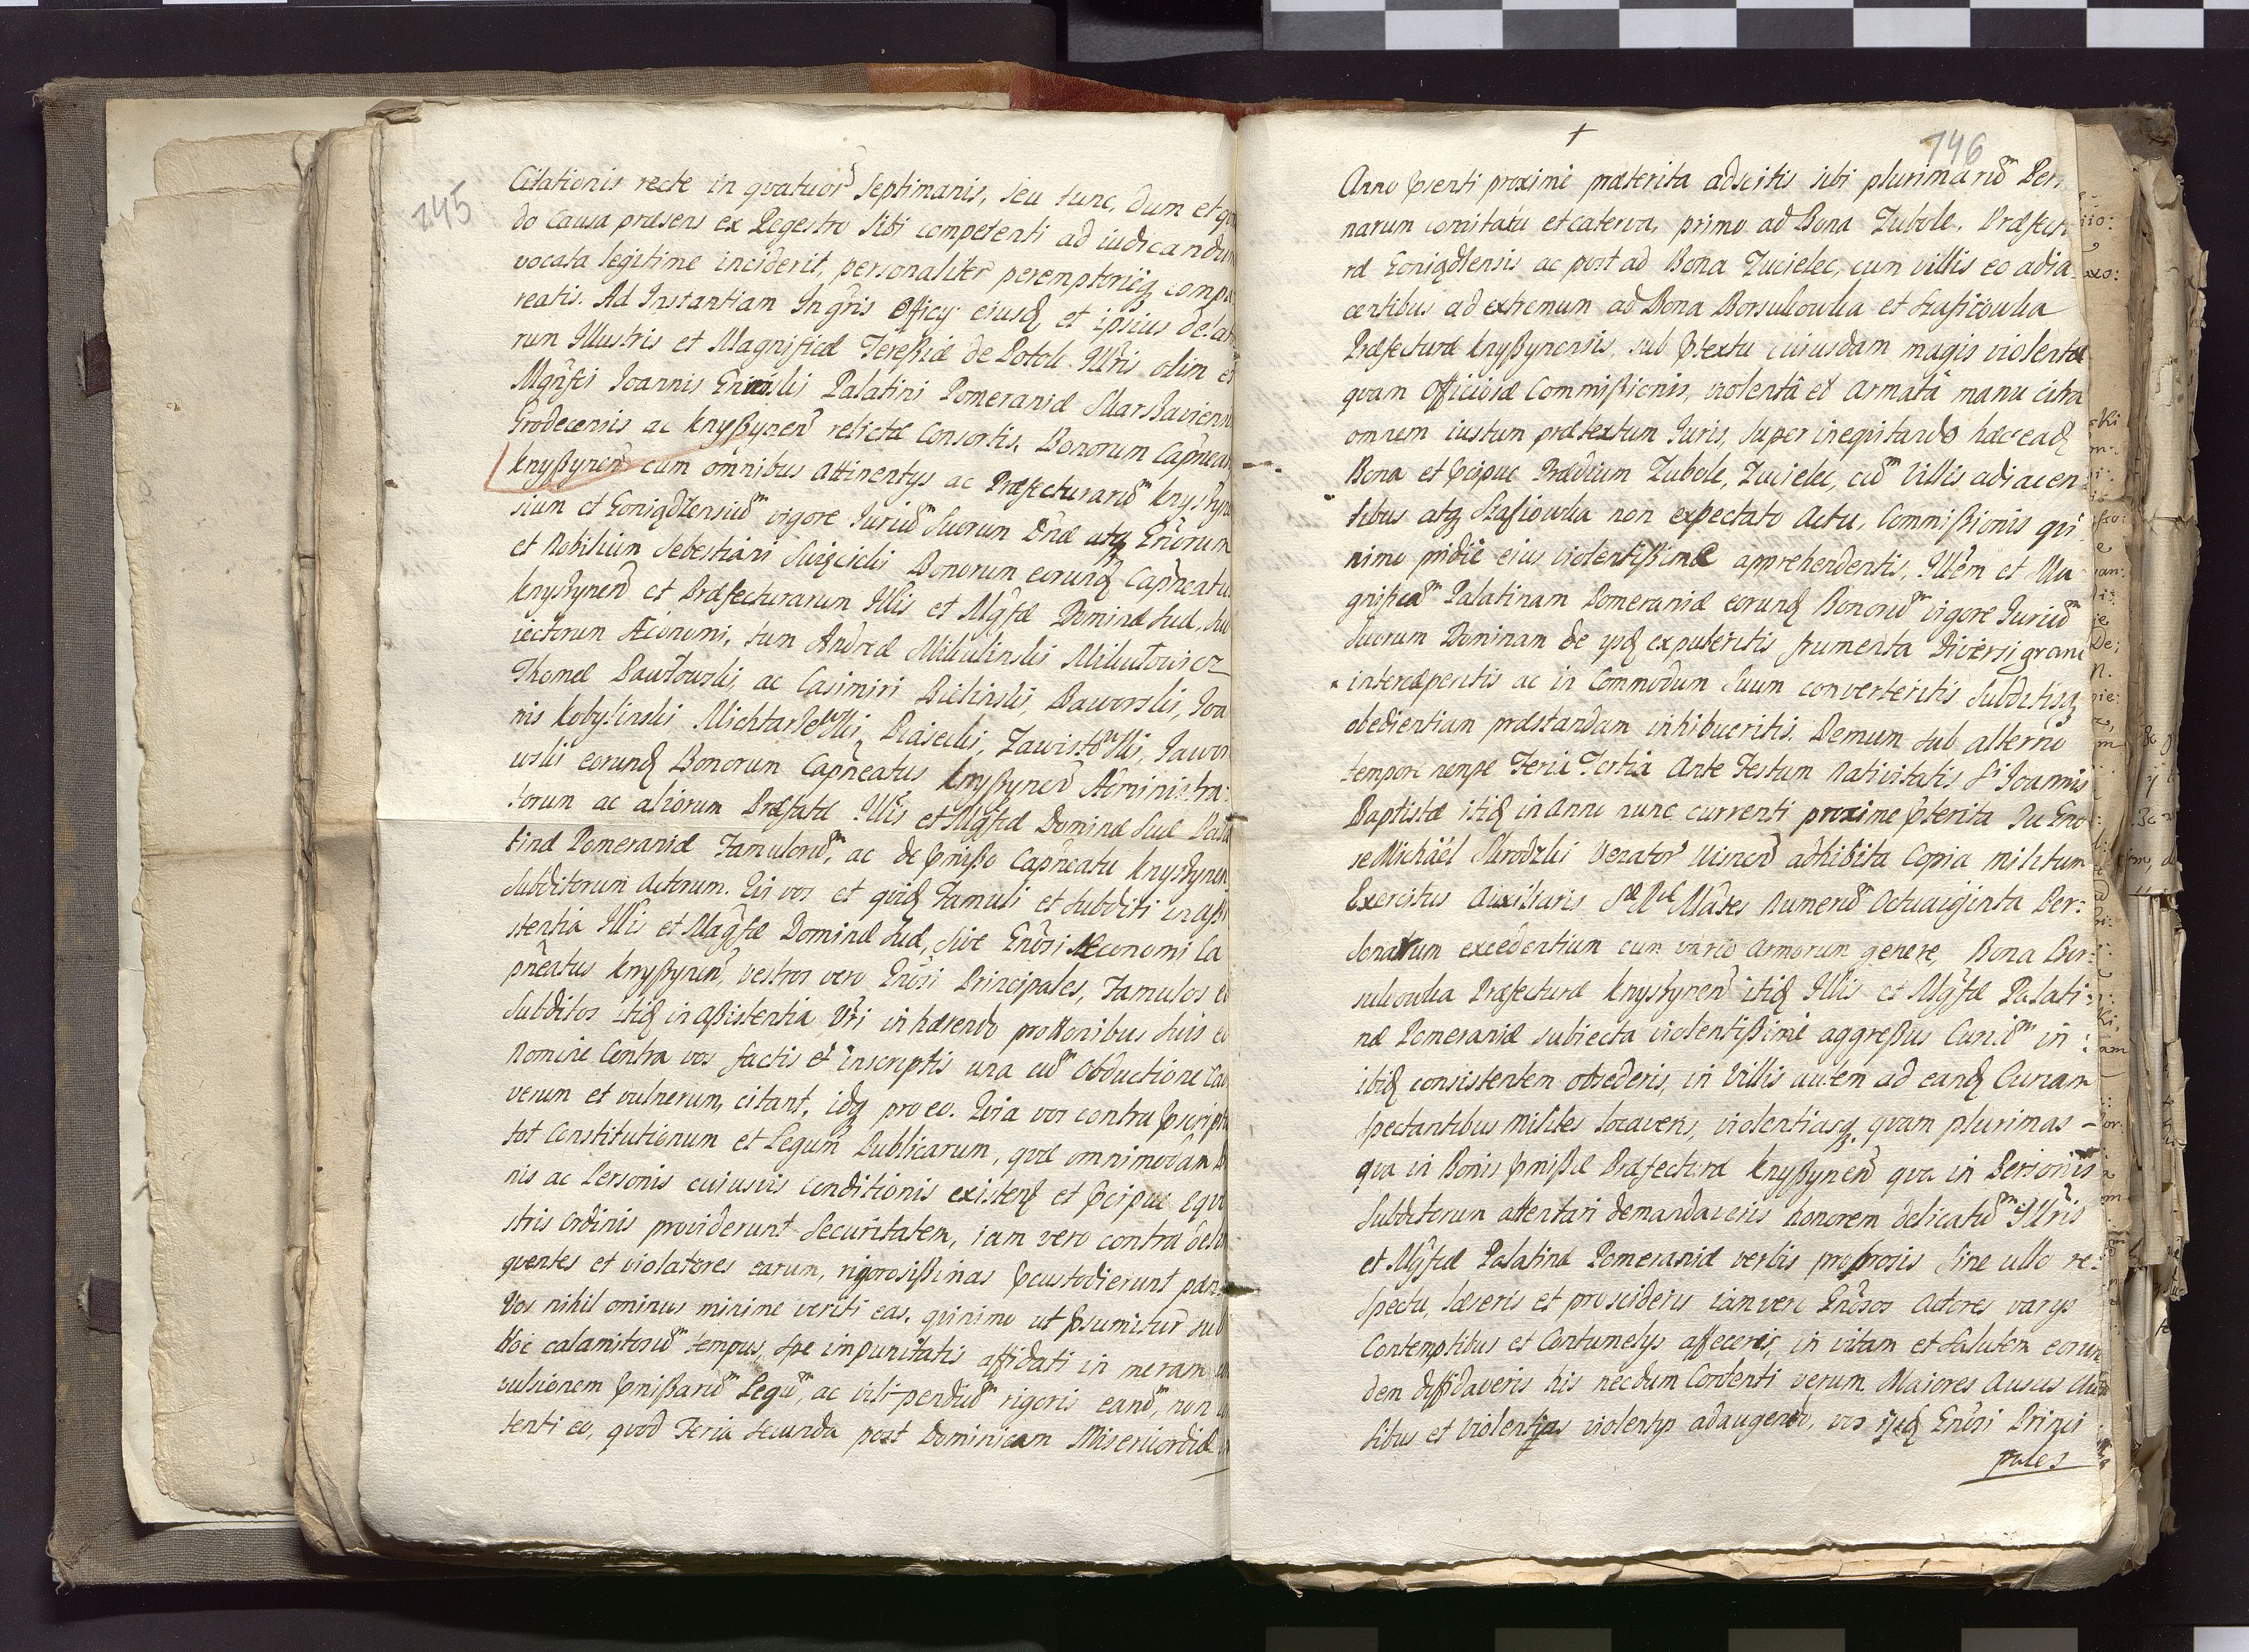 145
Citationis recte in qvatuor Septimanis, seu tunc, dum et qvan
do Causa præsens ex Regestro Sibi competenti ad iudicandum
vocata legitime inciderit, personaliter peremptorieq compa
reatis. Ad Instantiam Ingris Officy eiusq et ipsius delato
rum Illustris et Magnificæ Tereßiæ de Potok Illris olim et
Mgnfci Ioannis Palatini Pomeraniæ
Grodecensis ac Knyßynen relictæ Consortis, Bonorum Capneatu
Knyßynen cum omnibus attinentys ac Præfecturarum Knyßyne
sium et Gonigdzensium vigore Iurium Suorum Dnæ atq Gnorum
et Nobilium Sebestiani Bonorum eorundq Capneatu
Knyßynen et Præfecturarum Illris et Mgfæ Dominæ suæ, Sub
iectorum Æconomi, tum Andreæ Mikulinski Mikutowicz
Thomæ Pawłowski, ac Casimiri Bielinski, Baworski, Ioa
nis Kobylinski Piasecki, Zawisto Iawor
wski eorundq Bonorum Capneatus Knyßynen Administra
torum ac aliorum Præfatæ Illris et Mgfæ Dominæ suæ Pala
tinæ Pomeraniæ Famulorum, ac de pmißo Capneatu Knyßynen
Subditorum Actorum. Qui vos et qvidq Famuli et Subditi in aßi
stentia Illris et Magfæ Dominæ suæ, sive Gnosi Æconomi Ca
pneatus Knyßynen, vestros vero Gnosi Principales, Famulos et
Subditos itidq in aßistentia Vri inhærendo prottonibus suis eo
Nomine Contra vos factis et inscriptis una cum Obductione Cada
verum et vulnerum, citant, idq pro eo. Qvia vos contra pscripta
tot Constitutionum et Legum Publicarum, qvæ omnimodam Bo
nis ac Personis cuiusvis Conditionis existen et pcipue Eqve
stris Ordinis providerunt Securitatem, iam vero contra delin
qventes et violatores earum, rigorosißimas pcustodierunt pænas
Vos nihilominus minime veriti eas, qvinimo ut psumitur sub
hoc calamitosum tempus, spe impunitatis affidati in meram con
vulsionem pmißarum Legum, ac vili-pendium rigoris earum, non con
tenti eo, qvod Feria secunda post Dominicam Misericordiæ
146
Anno psenti proxime præterita adscitis sibi plurimarum Per,
narum comitatu et caterva, primo ad Bona Zubole, Præfectu
ræ Gonigdzensis ac post ad Bona Zucielec, cum villis eo adia
centibus ad extremum ad Bona Borsukowka et Szafirowka
Præfecturæ Knyßynensis, sub ptextu cuiusdam magis violentæ
qvam Officiosæ Commißionis, violentâ et Armatâ manu citra
omnem iustum prætextum Iuris, Super ineqvitando hæc eadq
Bona et pcipue Prædium Zubole, Zucielec, cum Villis adiacen
tibus atq Szafirowka non expectato Actu, Commißionis qvi
nimo pridie eius violentißime apprehendentis, Illem et Ma
gnificam Palatinam Pomeraniæ eorundq Bonorum vigore Iurium
Suorum Dominam de ysdq expuleritis frumenta Diversi grani
interceperitis ac in Commodum Suum converteritis Subditisq
obedientiam præstandam inhibueritis. Demum sub alterno
tempore nempe Feria Tertia Ante Festum Nativitatis Sti Ioannis
Baptistæ itidq in Anno nunc currenti proxime pterita Tu Gno
se Michäel Skrodzki Venator Visnen adhibita Copia militum
Exercitus Auxiliaris Numerum Octuaginta Per:
sonarum excedentium cum vario Armorum genere, Bona Bor:
sukowka Præfecturæ Knyßynen itidq Illris et Mgfæ Palati:
næ Pomeraniæ subiecta violentißime aggreßus Curiam in
ibidq consistentem obsederis, in Villis autem ad eandq Curiam
spectantibus Milites locaveris, violentiasq qvam plurimas –
qva in Bonis pmißæ Præfecturæ Knyßynen qva in Personis
Subditorum attentari demandaveris honorem delicatum Illris
et Mgfæ Palatinæ Pomeraniæ verbis probrosis sine ullo re:
spectu, læseris et proscideris iam vero Gnosos Actores varys
Contemptibus et Contumelys affeceris, in vitam et salutem eorun
dem diffidaveris his necdum Contenti verum Maiores Ausus Au
sibus et Violentias violentys adaugendo, vos ijdq Gnosi Princi
pales